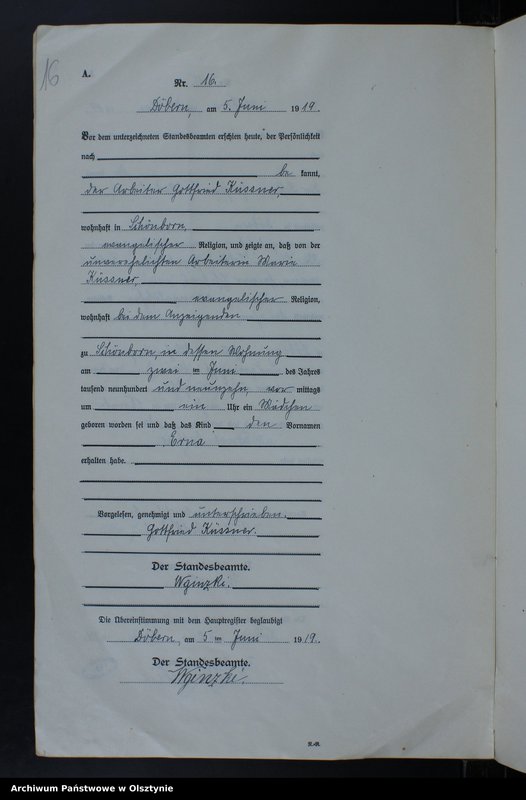 16
A.
Nr. 16.
Döbern, am 5. Juni 1919.
Vor dem unterzeichneten Standesbeamten erschien heute, der Persönlichkeit
nach
be kannt,
der Arbeiter Gottfried Küssner,
wohnhaft in Schönborn,
evangelischer Religion, und zeigte an, daß von der
unverehelichten Arbeiterin Marie
Küssner,
evangelischer Religion,
wohnhaft bei dem Anzeigenden
zu Schönborn, in dessen Wohnung
am zwei ten Juni des Jahres
tausend neunhundert und neunzehn, vor mittags
um ein Uhr ein Mädchen
geboren worden sei und daß das Kind den Vornamen
Erna
erhalten habe.
Vorgelesen, genehmigt und unterschrieben.
Gottfried Küssner.
Der Standesbeamte.
Die Übereinstimmung mit dem Hauptregister beglaubigt
Döbern, am 5 ten Juni 1919.
Der Standesbeamte.
Archiwum Państwowe w Olsztynie